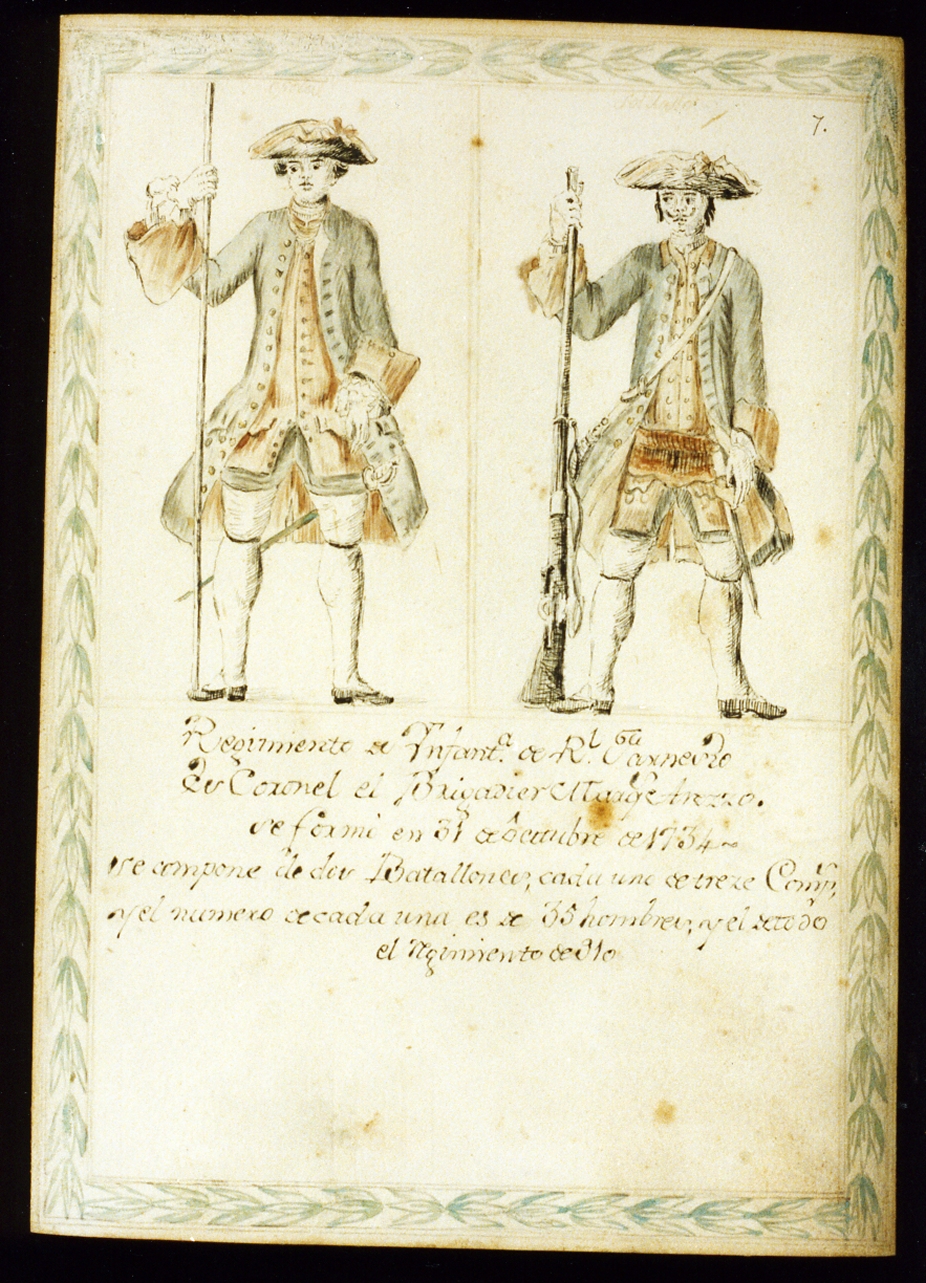 Soldado
7.
Regimiento de Ynfant.ª de R.l
Es Coronel el Brigadier Marq.s Arezzo.
se formó en 31 de Octubre de 1734
se compone de dos Batallones, cada uno de treze Comp.s
y el numero de cada una es de 35 hombres, y el de todo
el Regimiento de 910